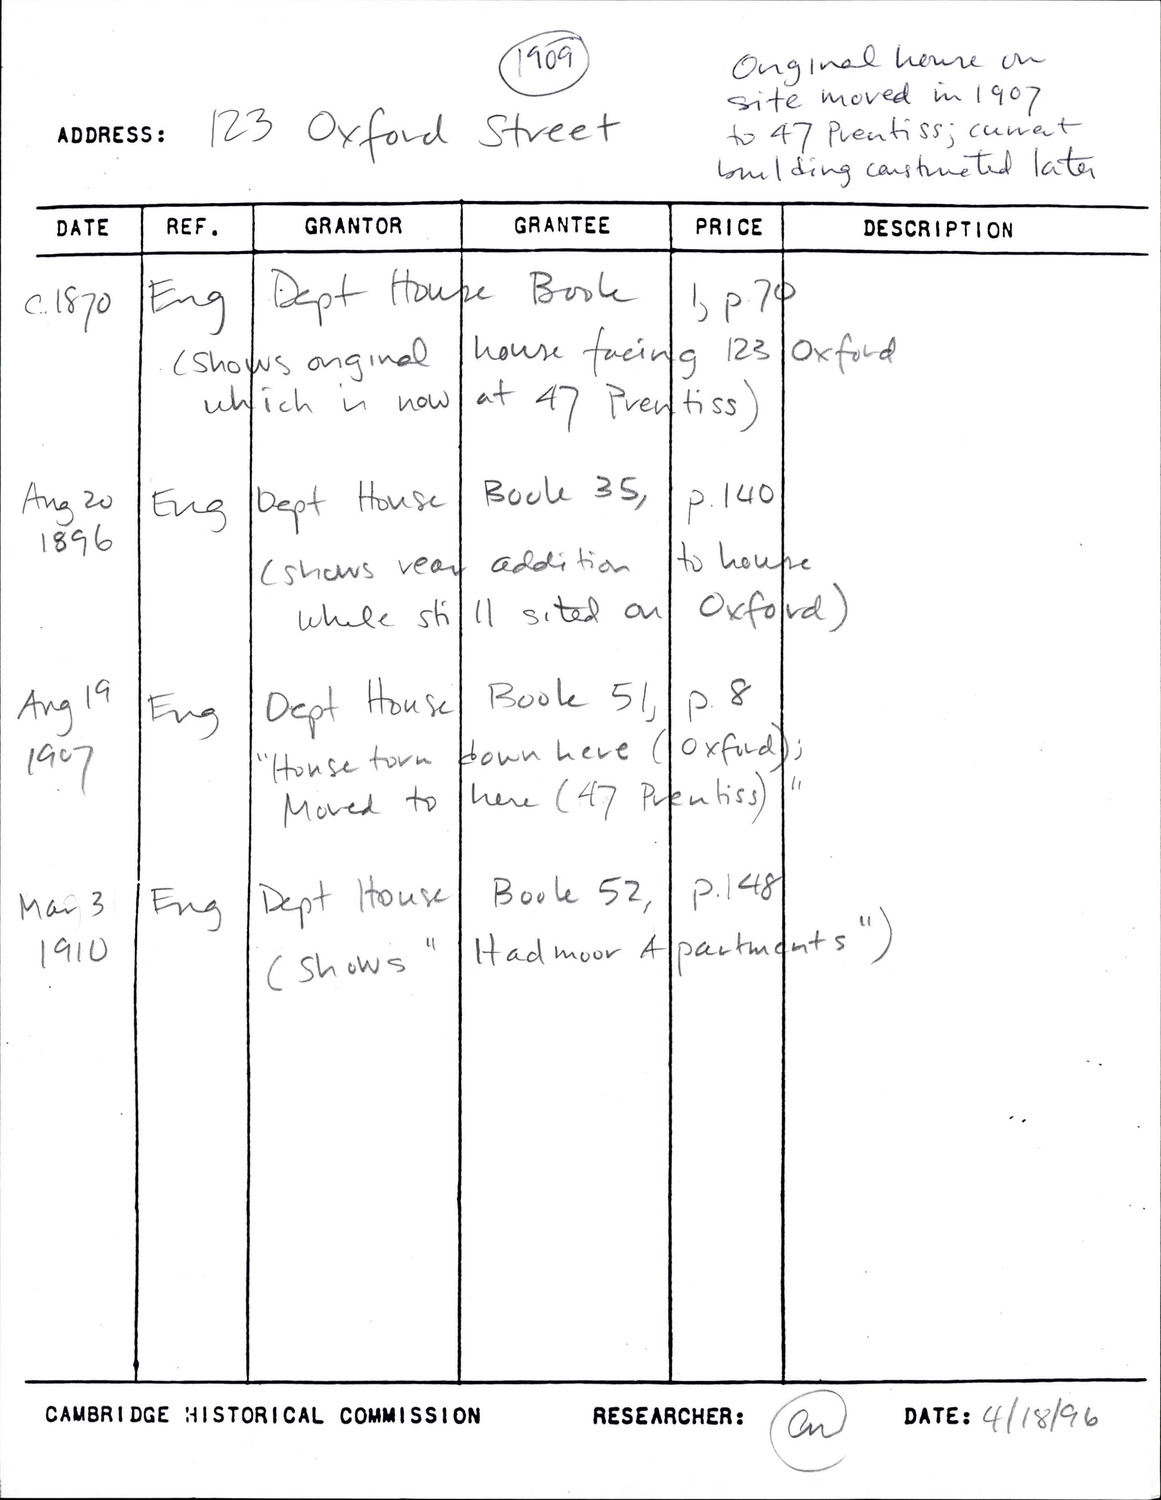 1909
Original house on
site moved in 1907
to 47 Prentiss; current
building constructed later
ADDRESS: 123 Oxford Street
DATE REF. GRANTOR GRANTEE PRICE DESCRIPTION
c.1870 Eng Dept House Book 1, p.70
(shows original house facing 123 Oxford
which is now at 47 Prentiss)
Aug 20 Eng Dept House Book 35, p.140
1896
(shows rear addition to house
while still sited on Oxford)
Aug 19 Eng Dept House Book 51, p. 8
1907
"House torn down here (Oxford);
Moved to here (47 Prentiss)"
Mar 3 Eng Dept House Book 52, p.148
1910
(shows "Hadmoor Apartments")
CAMBRIDGE HISTORICAL COMMISSION RESEARCHER: DATE: 4/18/96